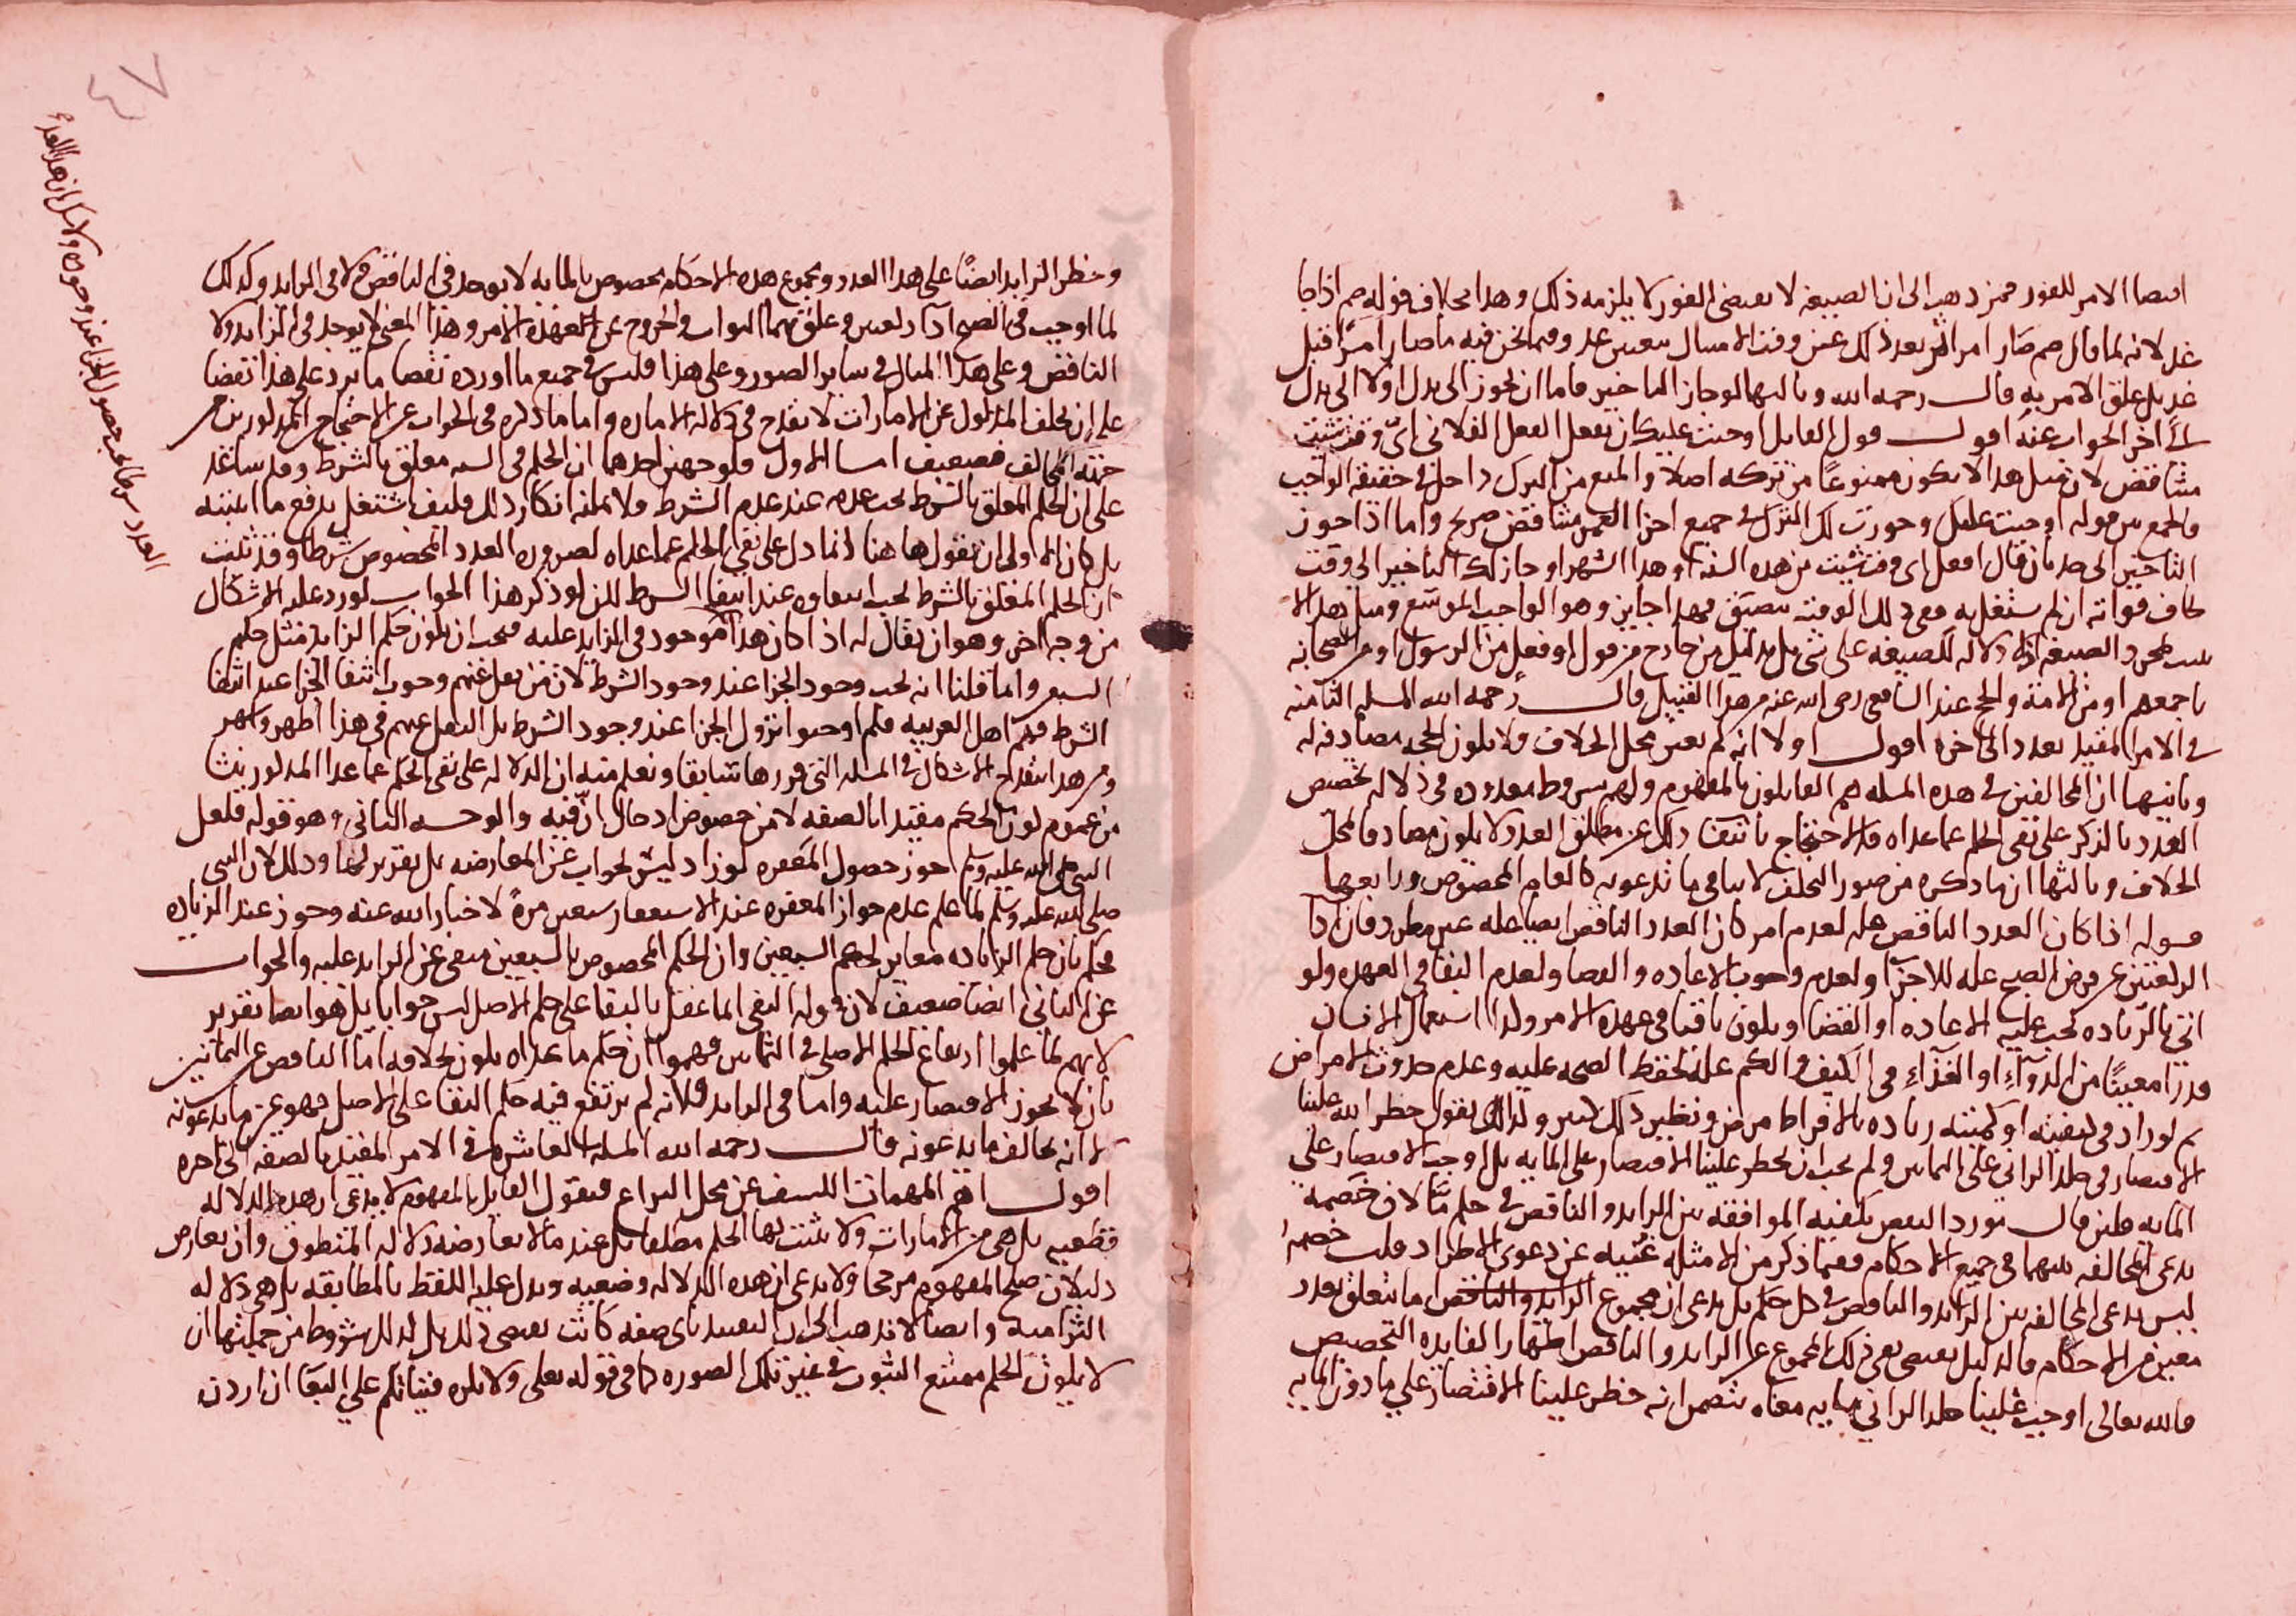 اقتضا الامر للفور فمن ذهب الى ان الصيغه لا تقتضى الفور لا يلزمه ذلك وهذا بخلاف قوله صم اذا جا
غد لانه لما قال صم صار امرا بعد ذلك عين وقت الامتثال بتعيين غد وفيما نحن فيه ما صار امرا قبل
غد بل علق الامر به قال رحمه الله وثالثها لو جاز التاخير فاما ان يجوز الى بدل او لا الى بدل
الى اخر الجواب عنه اقول قول القايل اوجبت عليك ان تفعل الفعل الفلانى اى وقت شيت
متناقض لان مثل هذا لا يكون ممنوعا من تركه اصلا والمنع من الترك داخل فى حقيقه الواجب
فالجمع بين قوله اوجبت عليك وجوزت لك الترك فى جميع اجزا العمر متناقض صريح واما اذا جوز
التاخير الى حد بان قال افعل اى وقت شيت من هذه السنه او هذا الشهر او جاز لك التاخير الى وقت
تخاف فواته ان لم تشتغل به ففى ذلك الوقت يتضيق فهذا جايز وهو الواجب الموسع ومثل هذا لا
يثبت بمجرد الصيغه اذ لا دلاله للصيغه على شى بل بدليل من خارج من قول او فعل من الرسول او من الصحابه
باجمعهم او من الامة والحج عند الشافعى رضى الله عنه من هذا القبيل قال رحمه الله المسله الثامنه
فى الامر المقيد بعدد الى اخره اقول اولا انه لم يعين محل الخلاف فلا يكون الحجه مصادفه له
وثانيها ان المخالفين فى هذه المسله هم القايلون بالمفهوم ولهم شروط معدوده فى دلاله تخصيص
العدد بالذكر على نفى الحكم عما عداه فالاحتجاج بانتفا ذلك عن مطلق العدد لا يكون مصادفا لمحل
الخلاف وثالثها ان ما ذكره من صور التخلف لا ينافى ما تدعونه كالعام المخصوص ورابعها
قوله اذا كان العدد الناقص عله لعدم امر كان العدد الناقص ايضا عله غير مطرد فان
الركعتين عن فرض الصبح عله للاجزا ولعدم وجوب الاعاده والقضا ولعدم البقا فى العهده ولو
اتى بالزياده تجب عليه الاعاده او القضا ويكون باقيا فى عهده الامر ولذا استعمال الانسان
قدرا معينا من الدواء او الغذاء فى الكيف والكم عله لحفظ الصحه عليه وعدم حدوث الامراض
ثم لو زاد فى كيفيته او كميته زياده بالافراط مرض ونظير ذلك كثير ولذلك يقول حظر الله علينا
الاقتصار فى جلد الزانى على الثمانين ولم يجب ان يحظر علينا الاقتصار على المايه بل اوجب الاقتصار على
المايه فلين قال مورد النقض يكفيه الموافقه بين الزايد والناقص فى حكم ما لان خصمه
يدعى المخالفه بينهما فى جميع الاحكام ففيما ذكر من الامثله غنيه عن دعوى الاطراد قلت خصمه
ليس يدعى المخالفه بين الزايد والناقص فى كل حكم بل يدعى ان مجموع ما يتعلق بعدد
معين من الاحكام فالدليل يقتضى نفى ذلك المجموع عن الزايد والناقص اظهارا لفايده التخصيص
فالله تعالى اوجب علينا جلد الزانى مايه معناه يتضمن انه حظر علينا الاقتصار على ما دون المايه
وحظر الزايد ايضا على هذا العدد ومجموع هذه الاحكام مخصوص بالمايه لا يوجد فى الناقص ولا فى الزايد وكذلك
لما اوجب فى الصبح اداء ركعتين وعلق بهما الثواب والخروج عن العهده الامر وهذا المعنى لا يوجد فى الزايد ولا
الناقص وعلى هذا المثال فى ساير الصور وعلى هذا فليس فى جميع ما اورده نقضا ما يرد على هذا نقضا
على ان تخلف المدلول عن الامارات لا يقدح فى دلاله الاماره واما ما ذكره فى الجواب عن الاحتجاج المذكورين من
جهته المخالف فضعيف اما الاول فلوجهين احدهما ان الحكم فى الايه معلق بالشرط وقد ساعد
على ان الحكم المعلق بالشرط يجب عدمه عند عدم الشرط ولا يمكنه انكار ذلك فكيف اشتغل بدفع ما اثبته
بل كان الاولى ان يقول هاهنا انما دل على نفى الحكم عما عداه لضروره العدد المخصوص شرطا وقد ثبت
ان الحكم المعلق بالشرط يجب انتفاوه عند انتفا الشرط لكن لو ذكر هذا الجواب لورد عليه الاشكال
من وجه اخر وهو ان يقال له اذا كان هذا موجود فى الزايد عليه فيجب ان يكون حكم الزايد مثل حكم
السبعين وانما قلنا انه يجب وجود الجزا عند وجود الشرط لان من نقل عنهم وجوب انتفا الجزا عند انتفا
الشرط فهم اهل العربيه فلم اوجبوا نزول الجزا عند وجود الشرط بل النقل عنهم فى هذا اظهر واشهر
ومن هذا ينقدح الاشكال فى المسله التى قررها سابقا ويعلم منه ان الدلاله على نفى الحكم عما عدا المذكور نشا
من عموم كون الحكم مقيدا بالصفه لا من خصوص ادخال ان فيه والوجه الثانى وهو قوله فلعل
النبى صلى الله عليه وسلم جوز حصول المغفره لو زاد ليس بجواب عن المعارضه بل تقرير لها وذلك لان النبى
صلى الله عليه وسلم لما علم عدم جواز المغفره عند الاستغفار سبعين مرة لاخبار الله عنه وجوز عند الزياده
فحكم بان حكم الزياده مغاير لحكم السبعين وان الحكم المخصوص بالسبعين منفى عن الزايد عليه والجواب
عن الثانى ايضا ضعيف لان قوله النفى انما عقل بالبقا على حكم الاصل ليس جوابا بل هو ايضا تقرير
لانهم لما علموا ارتفاع الحكم الاصلى فى الثمانين فهموا ان حكم ما عداه يكون بخلافه اما الناقص عن الثمانين
بان لا يجوز الاقتصار عليه واما فى الزايد فلانه لم يرتفع فيه حكم البقا على الاصل فهو عين ما يدعونه
لا انه يخالف ما يدعونه قال رحمه الله المسله العاشره فى الامر المقيد بالصفه الى اخره
اقول اهم المهمات الكشف عن محل النزاع فنقول القايل بالمفهوم لا يدعى ان هذه الدلاله
قطعيه بل هى من الامارات ولا يثبت بها الحكم مطلقا بل عندما لا يعارضه دلاله المنطوق وان تعارض
دليلان صلح المفهوم مرجحا ولا يدعى ان هذه الدلاله وضعيه ويدل عليه اللفظ بالمطابقه بل هى دلاله
التزاميه وايضا لا نذهب الى ان التقييد باى صفه كانت يقتضى ذلك بل لذلك شروط من جملتها ان
لا يكون الحكم ممتنع الثبوت فى غير تلك الصوره كما فى قوله تعلى ولا تكرهوا فتياتكم على البغا ان اردن
العدد شرطا يجب حصول الجزا عند وجوده ولا شك ان هذا العدد
٤٧